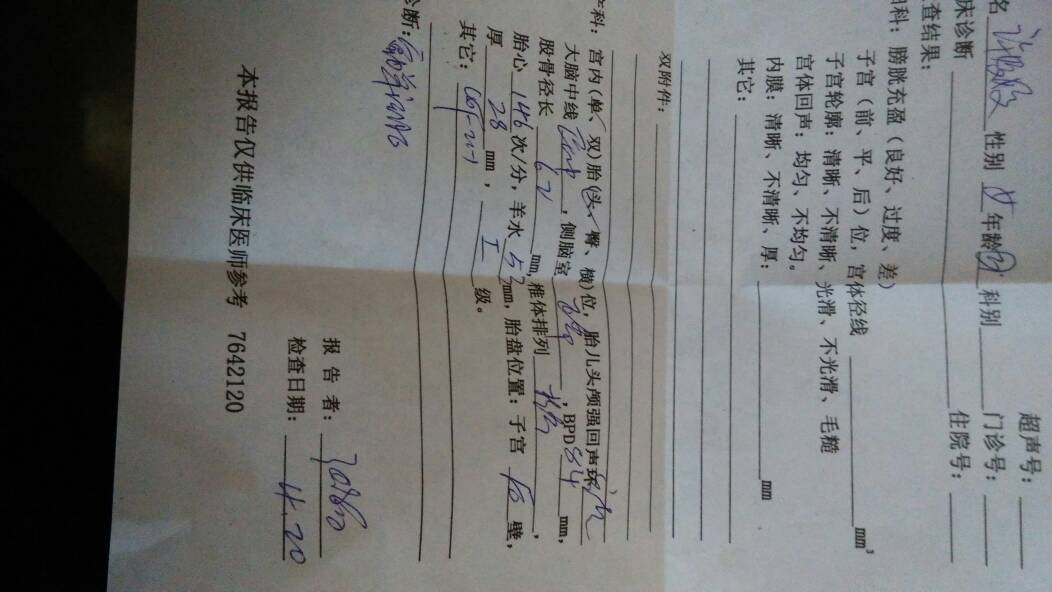 超声号：
名 性别 女 年龄 科别 门诊号：
床诊断 住院号：
查结果：
科：膀胱充盈（良好、过度、差）
子宫（前、平、后）位，宫体径线 mm³
子宫轮廓：清晰、不清晰、光滑、不光滑、毛糙
宫体回声：均匀、不均匀。
内膜：清晰、不清晰、厚： mm
其它：
双附件：
科：宫内（单、双）胎（头、臀、横）位，胎儿头颅强回声环
大脑中线 ，侧脑室 ，BPD 84 mm，
股骨径长 62 mm，椎体排列 ，
胎心 146 次/分，羊水 53 mm，胎盘位置：子宫 后 壁，
厚 28 mm， I 级。
其它：
诊断：
报 告 者：
检查日期： 4.20
本报告仅供临床医师参考 7642120